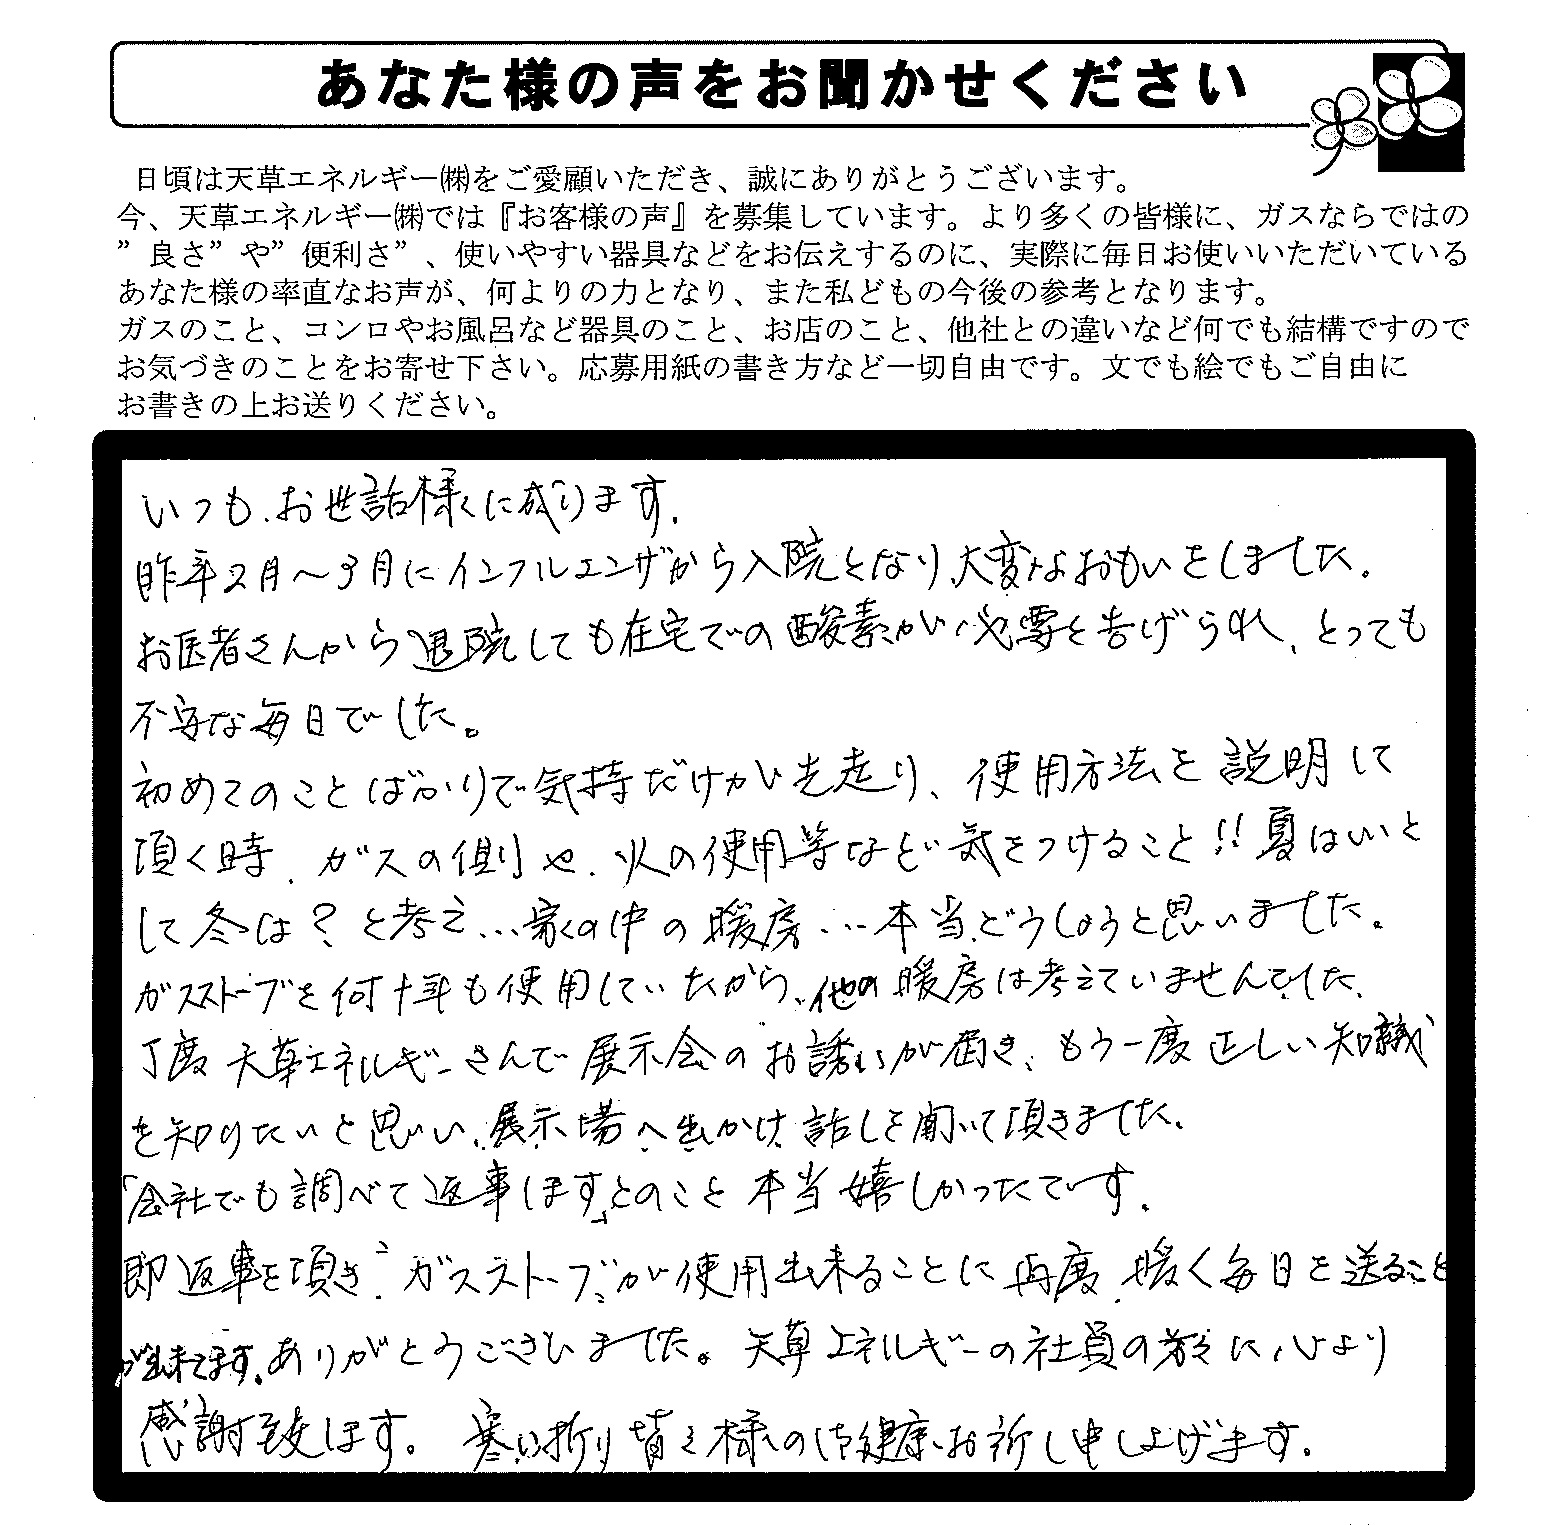 あなた様の声をお聞かせください
日頃は天草エネルギー㈱をご愛顧いただき、誠にありがとうございます。
今、天草エネルギー㈱では『お客様の声』を募集しています。より多くの皆様に、ガスならではの
”良さ”や”便利さ”、使いやすい器具などをお伝えするのに、実際に毎日お使いいただいている
あなた様の率直なお声が、何よりの力となり、また私どもの今後の参考となります。
ガスのこと、コンロやお風呂など器具のこと、お店のこと、他社との違いなど何でも結構ですので
お気づきのことをお寄せ下さい。応募用紙の書き方など一切自由です。文でも絵でもご自由に
お書きの上お送りください。
いつも、お世話様に成ります。
昨年2月～3月にインフルエンザから入院となり、大変なおもいをしました。
お医者さんから退院しても在宅での酸素が必要と告げられ、とっても
不安な毎日でした。
初めてのことばかりで気持だけが先走り、使用方法を説明して
頂く時、ガスの側や、火の使用等など気をつけること!!夏はいいと
して冬は？と考え…家の中の暖房…本当、どうしようと思いました。
ガスストーブを何十年も使用していたから、他の暖房は考えていませんでした。
丁度天草エネルギーさんで展示会のお誘いが届き、もう一度正しい知識
を知りたいと思い、展示場へ出かけ、話しを聞いて頂きました。
「会社でも調べて返事します」とのこと本当嬉しかったです。
即返事を頂き、ガスストーブが使用出来ることに再度、暖く毎日を送ること
が出来てます。ありがとうございました。天草エネルギーの社員の皆々に心より
感謝致します。寒い折り皆々様の健康お祈し申し上げます。